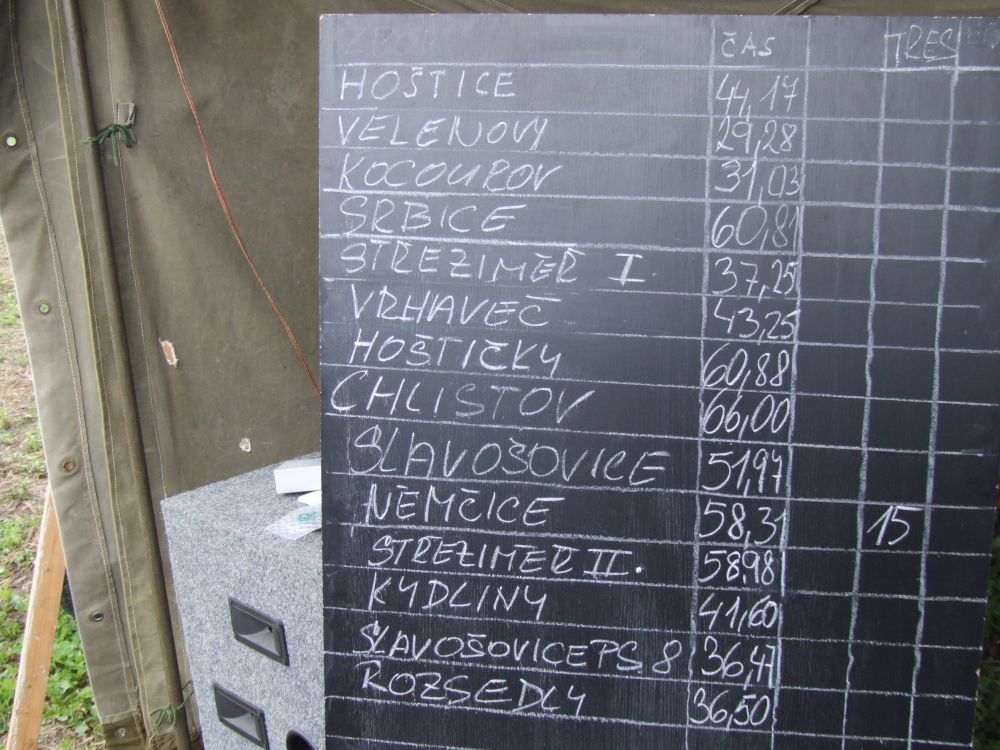 ČAS TRES
HOŠTICE 44,17
VELENOVY 29,28
KOCOUROV 31,03
SRBICE 60,81
STŘEZIMĚŘ I. 37,25
VRHAVEČ 43,25
HOŠTIČKY 60,88
CHLISTOV 66,00
SLAVOŠOVICE 51,97
NĚMČICE 58,31 15
STŘEZIMĚŘ II. 58,98
KYDLINY 41,60
SLAVOŠOVICE PS 8 36,47
ROZSEDLY 36,50